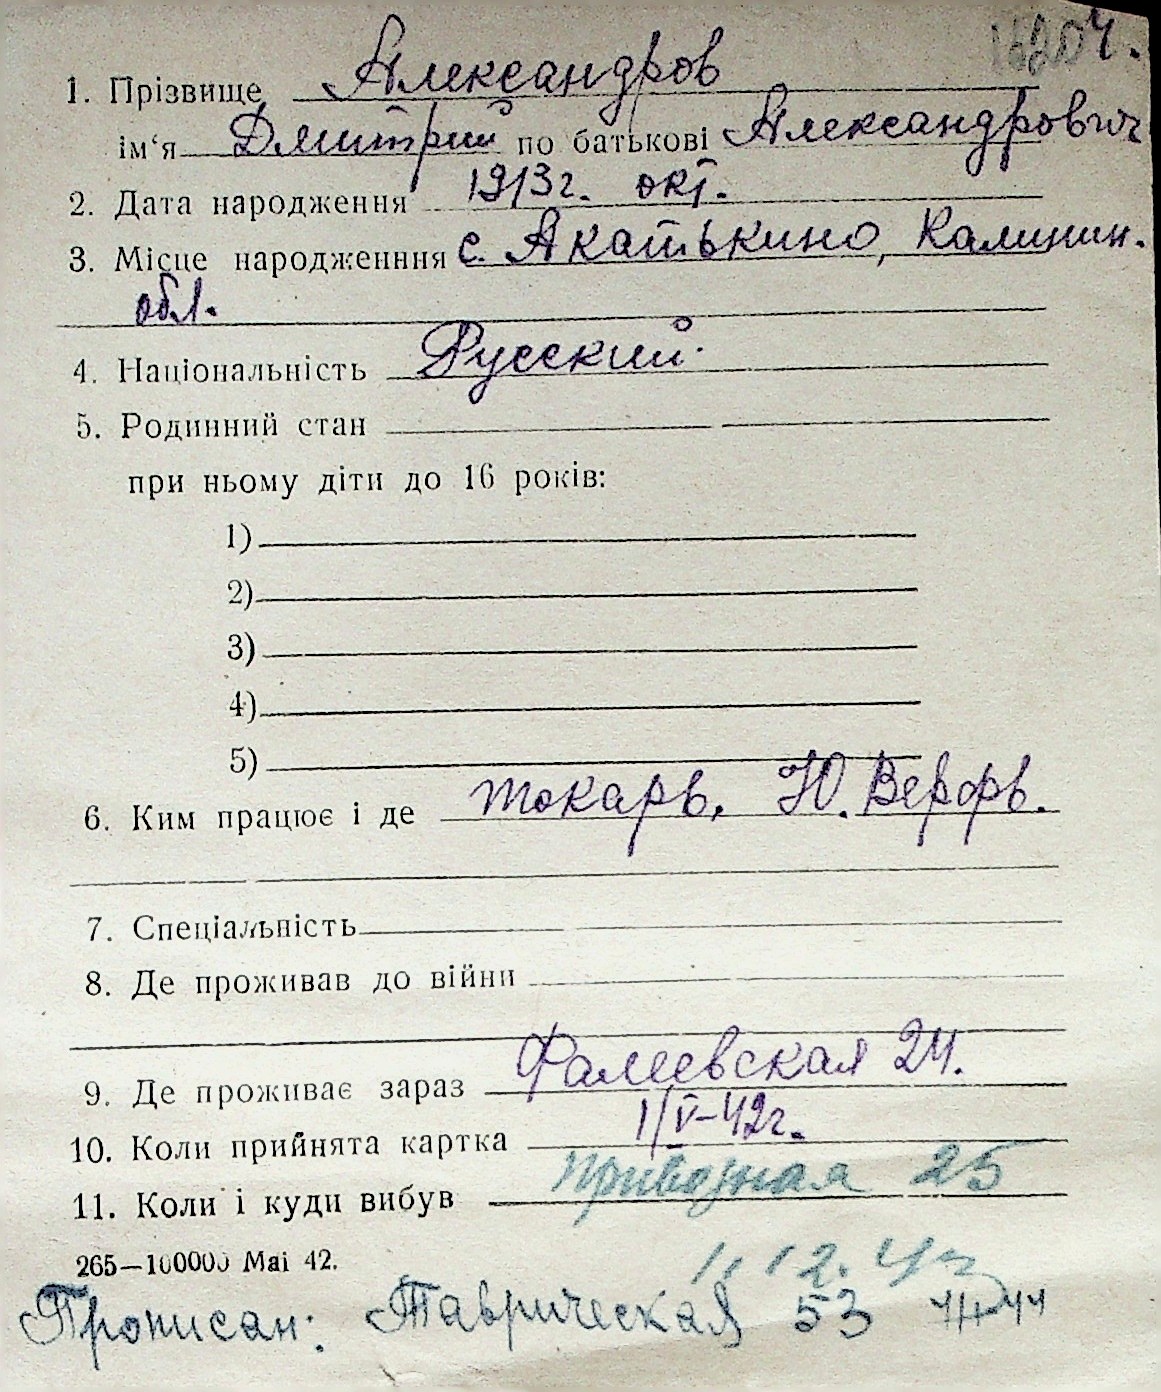 1. Прізвище Александров
ім‘я Дмитрий по батькові Александрович
2. Дата народження 1913г. окт.
3. Місце народженння с. Акатькино, Калинин.
обл.
4. Національність Русский.
5. Родинний стан
при ньому діти до 16 років:
1)
2)
3)
4)
5)
6. Ким працює і де токарь, Ю. Верфь.
7. Спеціальність
8. Де проживав до війни
9. Де проживає зараз Фалеевская 24.
10. Коли прийнята картка 1/V-42г.
11. Коли і куди вибув Привозная 25
265—100000 Mai 42.
1.12.42
Прописан: Таврическая 53